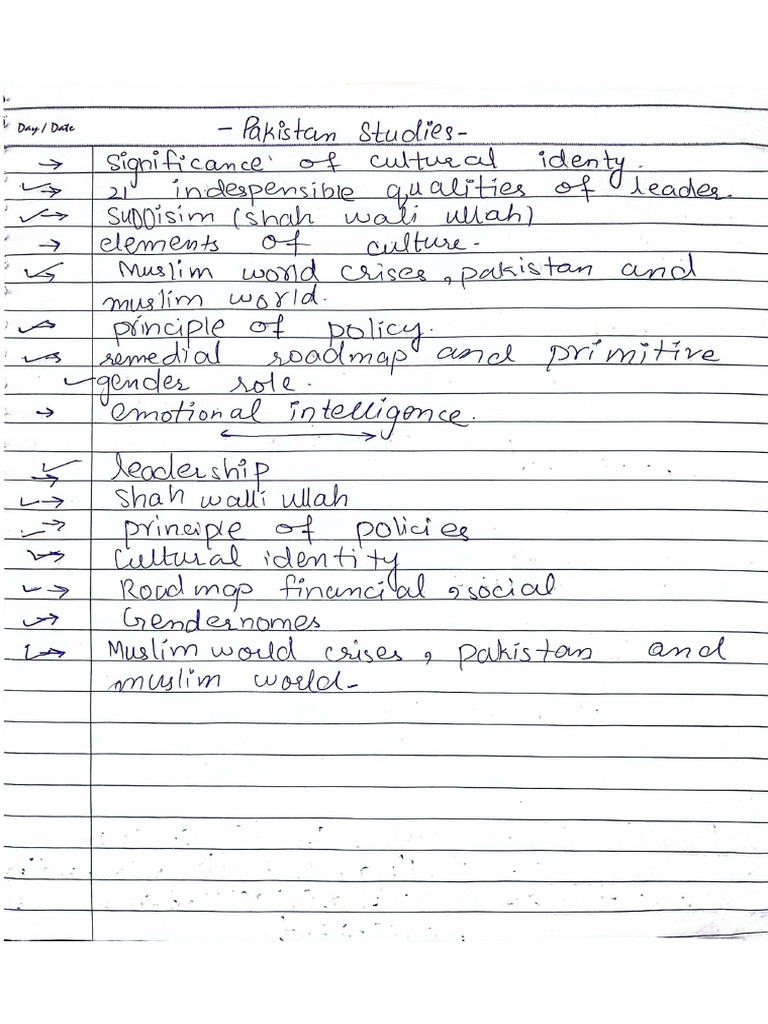 Day / Date
- Pakistan Studies -
→ Significance of cultural identy.
→ 21 indespensible qualities of leader.
→ SUDDisim (shah wali ullah)
→ elements of culture -
→ Muslim world crises, pakistan and
muslim world.
→ principle of policy.
→ remedial roadmap and primitive
✓ gender role.
→ emotional intelligence.
leadership
→ Shah walli ullah
→ principle of policies
→ Cultural identity
→ Road map financial, social
→ Gendernomes
→ Muslim world crises, pakistan and
muslim world -